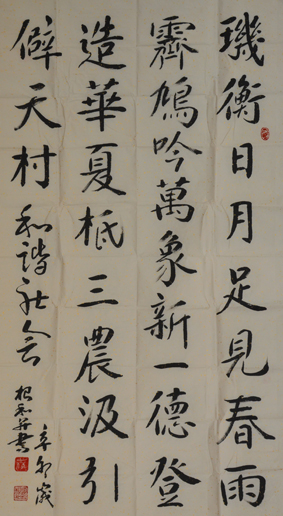 璣衡日月足見春雨
霽鳩吟萬象新一德登
造華夏柢三農汲引
僻天村和諧社会
辛卯歲
根並書